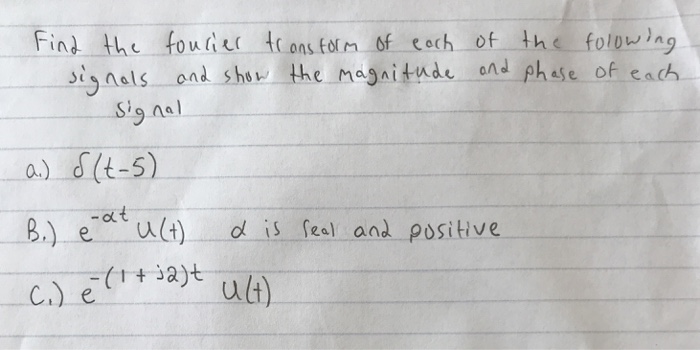 Find the fourier transform of each of the folowing
signals and show the magnitude and phase of each
signal
a.) δ(t-5)
B.) e^-αt u(t) α is real and positive
C.) e^-(1+j2)t u(t)